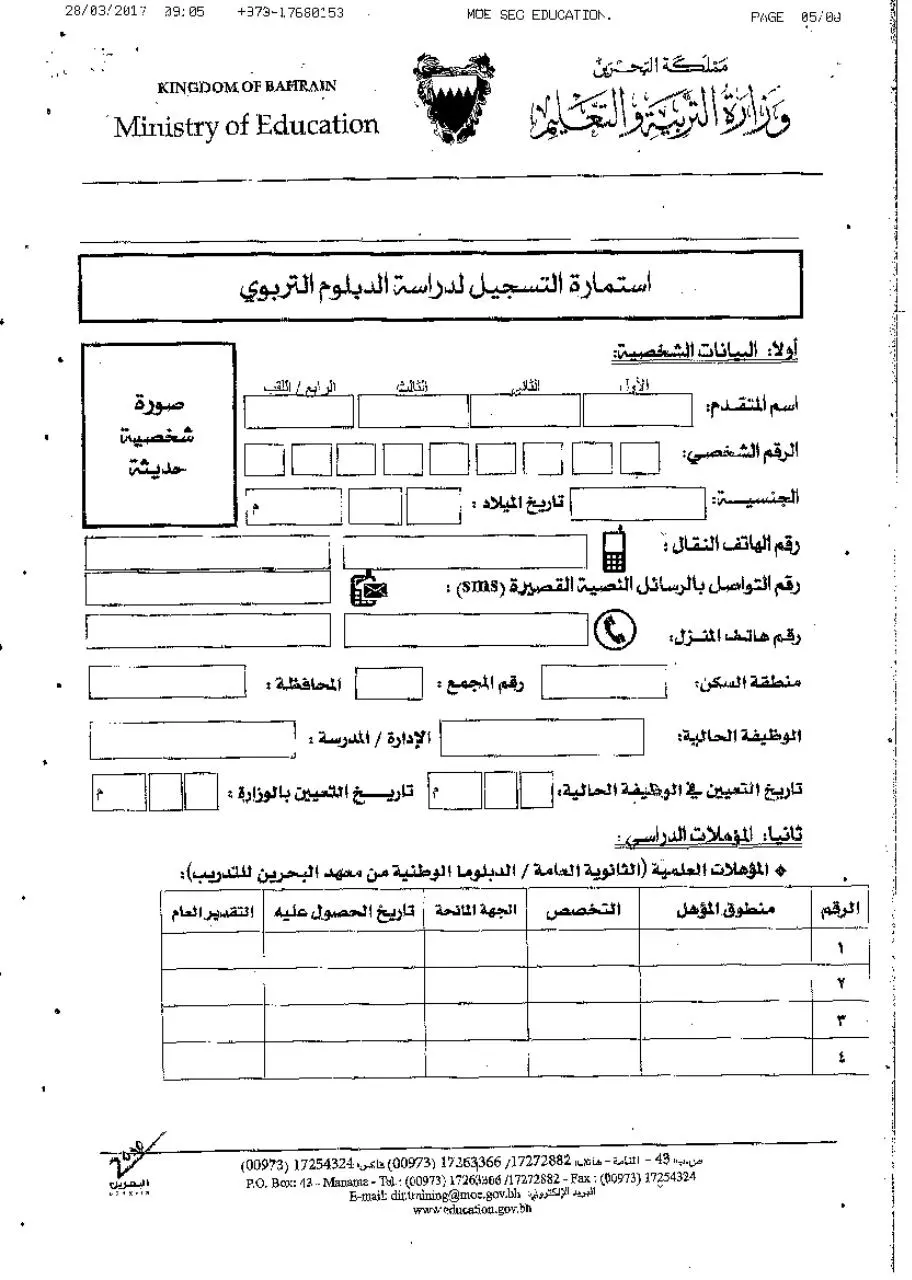 28/03/2017 09:05 +973-17680153 MOE SEC EDUCATION. PAGE 05/08
KINGDOM OF BAHRAIN
Ministry of Education
مملكة البحرين
وزارة التربية والتعليم
استمارة التسجيل لدراسة الدبلوم التربوي
أولا: البيانات الشخصية:
صورة
شخصية
حديثة
الأول الثاني الثالث الرابع / اللقب
اسم المتقدم:
الرقم الشخصي:
الجنسية: تاريخ الميلاد : م
رقم الهاتف النقال :
رقم التواصل بالرسائل النصية القصيرة (sms) :
رقم هاتف المنزل:
منطقة السكن: رقم المجمع : المحافظة :
الوظيفة الحالية: الإدارة / المدرسة :
تاريخ التعيين في الوظيفة الحالية: م تاريخ التعيين بالوزارة : م
ثانيا: المؤهلات الدراسي:
❖ المؤهلات العلمية (الثانوية العامة / الدبلوما الوطنية من معهد البحرين للتدريب):
الرقم منطوق المؤهل التخصص الجهة المانحة تاريخ الحصول عليه التقدير العام
١
٢
٣
٤
البحرين
ص.ب: 43 – المنامة – هاتف: 17272882/ 17263366 (00973) فاكس: 17254324 (00973)
P.O. Box: 43 - Manama - Tel.: (00973) 17263366 /17272882 - Fax : (00973) 17254324
E-mail: dir.training@moe.gov.bh البريد الإلكتروني:
www.education.gov.bh